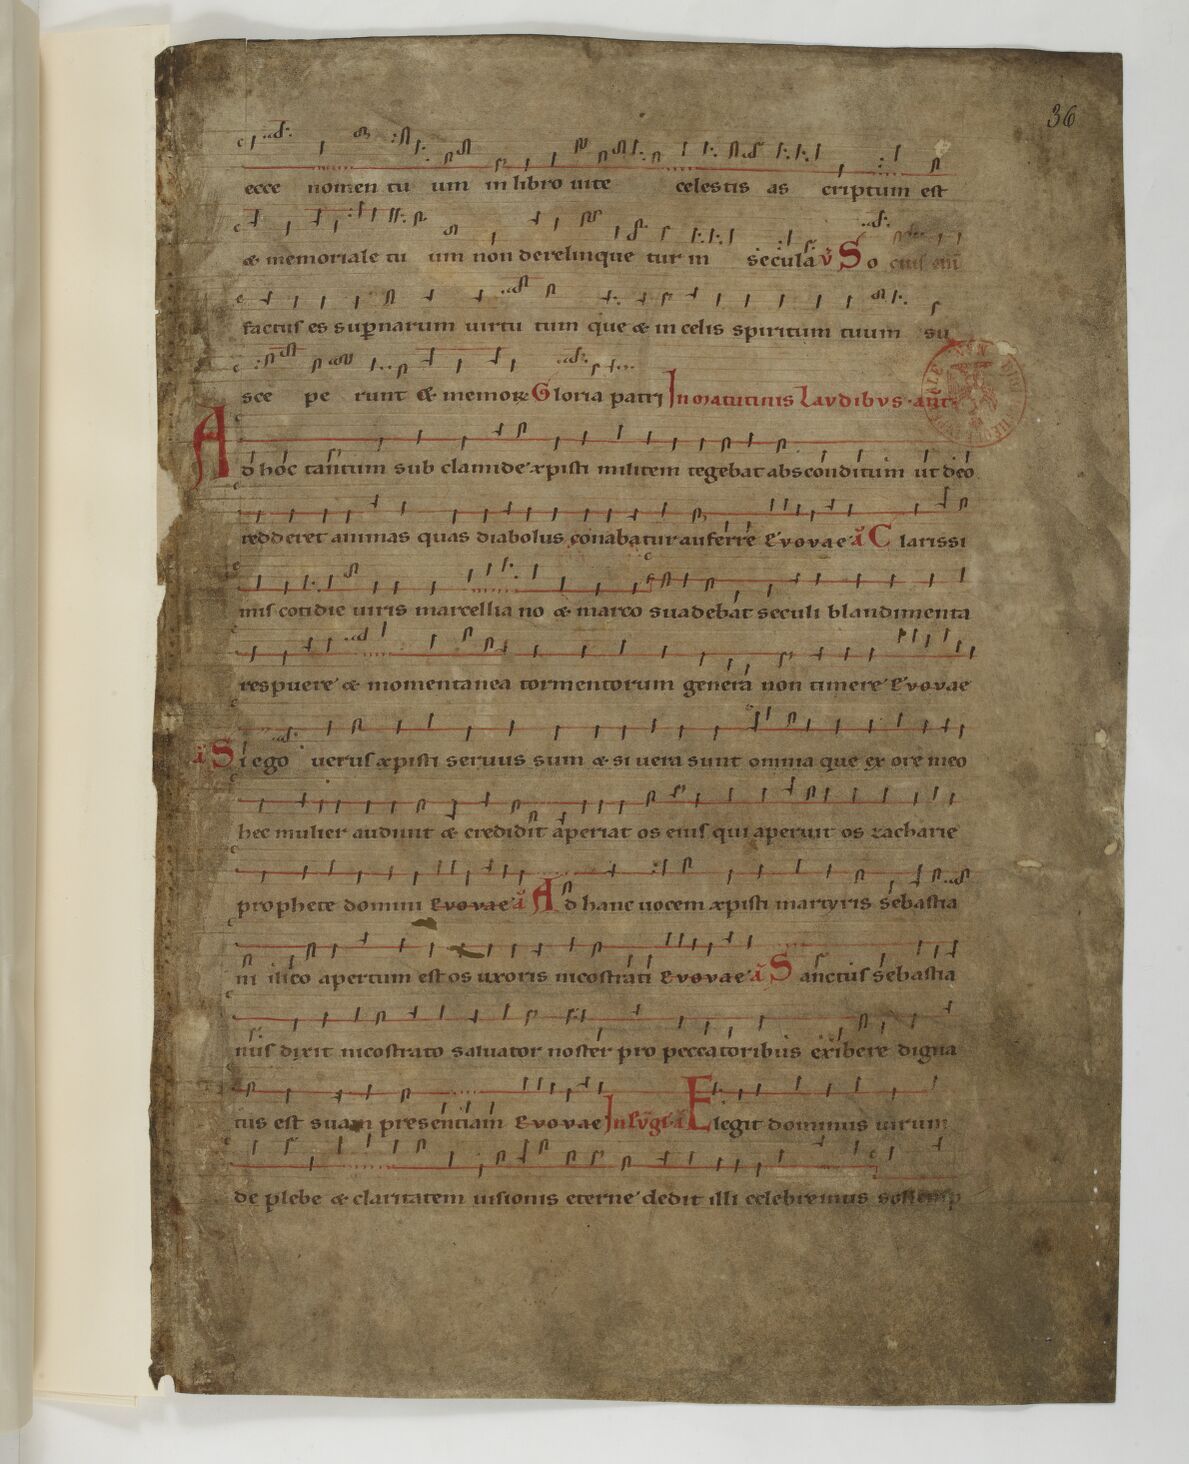 36
ecce nomen tu um in libro uite celestis as criptum est
& memoriale tu um non derelinque tur in secula ṽ So cius enī
factus es sup̄narum uirtu tum que & in celis spiritum tuum su
sce pe runt & memor Gloria patri In matutinis Laudibus ant
Ad hoc tantum sub clamide xpisti militem tegebat absconditum ut deo
redderet animas quas diabolus conabatur auferre Euouae ã Clarissi
mis cotidie uiris marcellia no & marco suadebat seculi blandimenta
respuere & momentanea tormentorum genera non timere Euouae
ã Si ego uerus xpisti seruus sum & si uera sunt omnia que ex ore meo
hec mulier audiuit & credidit aperiat os eius qui aperuit os zacharie
prophete domini Euouae ã Ad hanc uocem xpisti martyris sebastia
ni ilico apertum est os uxoris nicostrati Euouae ã Sanctus sebastia
nus dixit nicostrato saluator noster pro peccatoribus exibere digna
tus est suam presentiam Euouae In eug̃l ã Elegit dominus uirum
de plebe & claritatem uisionis eterne dedit illi celebremus sollemp